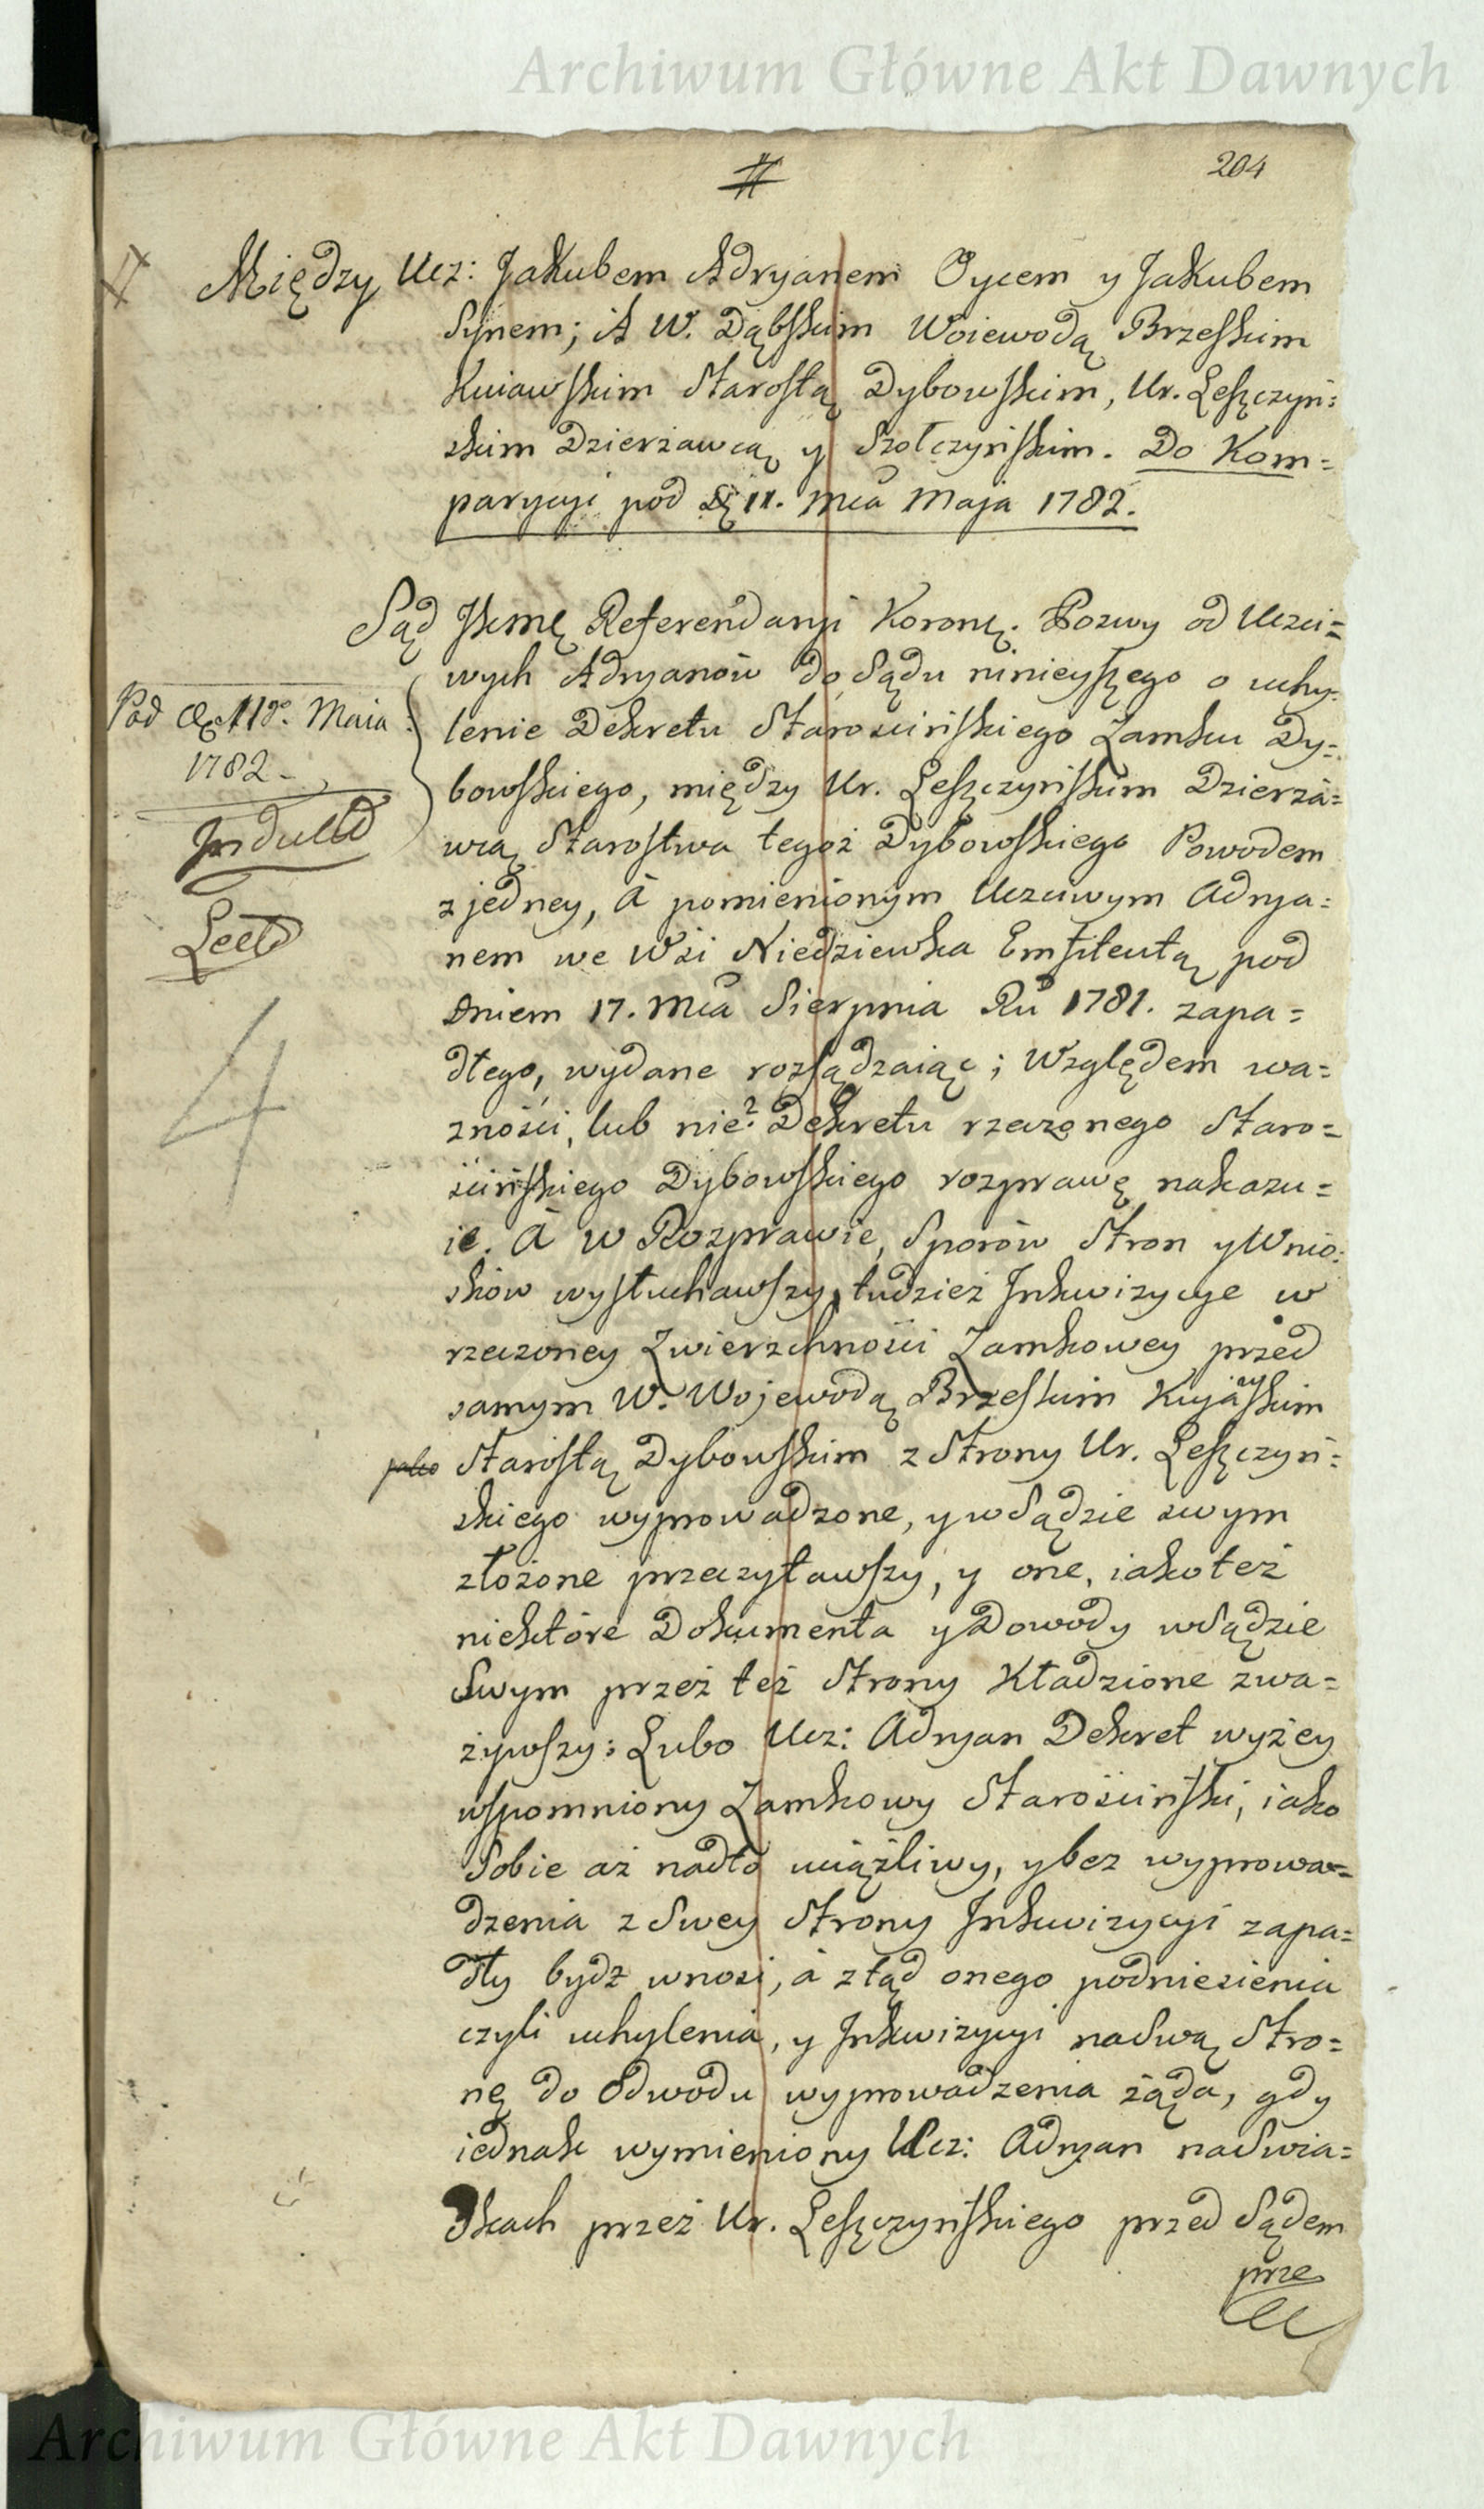 Archiwum Główne Akt Dawnych
204
Między Ucz: Jakubem Adryanem Oycem y Jakubem
Synem; A W. Dąbskim Woiewodą Brzeskim
Kuiawskim Starostą Dybowskim, Ur. Leszczyń:
skim Dzierżawcą y Szołczyńskim. Do Kom=
parycyi pod Dę 11. Mca Maja 1782.
Sąd JKMę Referendaryi Koronę. Pozwy od Uczci=
wych Adryanów do Sądu ninieyszego o uchy:
Pod Dę 11go. Maia
lenie Dekretu Starościńskiego Zamku Dy=
1782.
bowskiego, między Ur. Leszczyńskim Dzierża=
Indultd
wcą Starostwa tegoż Dybowskiego Powodem
z jedney, A pomienionym Uczciwym Adrya=
Lectd
nem we Wsi Niedziewka Emfiteutą pod
dniem 17. Mca Sierpnia Ru 1781. zapa=
4
dłego, wydane rozsądzaiąc; Względem wa=
zności, lub nie? Dekretu rzeczonego Staro=
ścińskiego Dybowskiego rozprawę nakazu=
ie. A w Rozprawie, Sporów Stron y Wnio:
sków wysłuchawszy, tudzież Inkwizycye w
rzeczoney Zwierzchności Zamkowey przed
samym W. Wojewodą Brzeskim Kujawskim
Starostą Dybowskim z Strony Ur. Leszczyń=
skiego wyprowadzone, y w Sądzie swym
złożone przeczytawszy, y one, iako też
niektóre Dokumenta y Dowody w Sądzie
Swym przez też Strony Kładzione zwa=
żywszy: Lubo Ucz: Adryan Dekret wyżey
wspomniony Zamkowy Starościński, iako
Sobie aż nadto uciążliwy, y bez wyprowa=
dzenia z Swey Strony Inkwizycyi zapa=
dły bydź wnosi, á ztąd onego podniesienia
czyli uchylenia, y Inkwizycyi na Swą Stro=
nę do Odwodu wyprowadzenia żąda, gdy
iednak wymieniony Ucz: Adryan na Swia=
dkach przez Ur. Leszczyńskiego przed Sądem
prze
Archiwum Główne Akt Dawnych